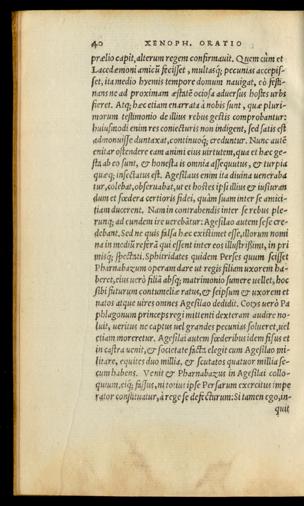 40 XENOPH. ORATIO
prælio capit, alterum regem confirmauit. Quem cùm et
Lacedæmonij amicũ fecisset, multasq́; pecunias accepis-
set, ita medio hyemis tempore domum nauigat, eò festi-
nans ne ad proximam æstatē ociosa aduersus hostes urbs
fieret. Atq; hæc etiam enarrata à nobis sunt, quæ pluri-
morum testimonio de illius rebus gestis comprobantur:
huiusmodi enim res coniecturis non indigent, sed satis est
admonuisse duntaxat, continuoq́; creduntur. Nunc autē
enitar ostendere eam animi eius uirtutem, qua et hæc ge-
sta ab eo sunt, & honesta is omnia assequutus, & turpia
quæq; insectatus est. Agesilaus enim ita diuina ueneraba
tur, colebat, obseruabat, ut et hostes ipsi illius & iusiuran
dum et fœdera certioris fidei, quàm suam inter se amici-
tiam ducerent. Nam in contrahendis inter se rebus ple-
runq; ad eundem ire uerebātur: Agesilao autem sese cre-
debant. Sed ne quis falsa hæc existimet esse, illorum nomi
na in mediũ referã qui essent inter eos illustrißimi, in pri
misq́; spectati. Sphitridates quidem Perses quum scisset
Pharnabazum operam dare ut regis filiam uxorem ha-
beret, eius uerò filiã absq; matrimonio sumere uellet, hoc
sibi futurum contumeliæ ratus, & seipsum & uxorem et
natos atque uires omnes Agesilao dedidit. Cotys uerò Pa
phlagonum princeps regi mittenti dexteram audire no-
luit, ueritus ne captus uel grandes pecunias solueret, uel
etiam moreretur. Agesilai autem fœderibus idem fisus et
in castra uenit, & societate facta elegit cum Agesilao mi-
litare, equites duo millia, & scutatos quatuor millia se-
cum habens. Venit & Pharnabazus in Agesilai collo-
quium, eiq́; fassus, ni totius ipse Persarum exercitus impe
rator constituatur, à rege se defecturum: Si tamen ego, in-
quit